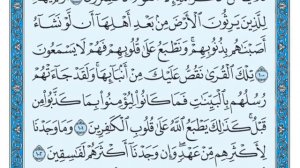 لِلَّذِينَ يَرِثُونَ الْأَرْضَ مِنْ بَعْدِ أَهْلِهَا أَنْ لَوْ نَشَاءُ
أَصَبْنَاهُمْ بِذُنُوبِهِمْ ۚ وَنَطْبَعُ عَلَىٰ قُلُوبِهِمْ فَهُمْ لَا يَسْمَعُونَ
١٠٠ تِلْكَ الْقُرَىٰ نَقُصُّ عَلَيْكَ مِنْ أَنْبَائِهَا ۚ وَلَقَدْ جَاءَتْهُمْ
رُسُلُهُمْ بِالْبَيِّنَاتِ فَمَا كَانُوا لِيُؤْمِنُوا بِمَا كَذَّبُوا مِنْ
قَبْلُ ۚ كَذَٰلِكَ يَطْبَعُ اللَّهُ عَلَىٰ قُلُوبِ الْكَافِرِينَ ١٠١ وَمَا وَجَدْنَا
لِأَكْثَرِهِمْ مِنْ عَهْدٍ ۖ وَإِنْ وَجَدْنَا أَكْثَرَهُمْ لَفَاسِقِينَ ١٠٢